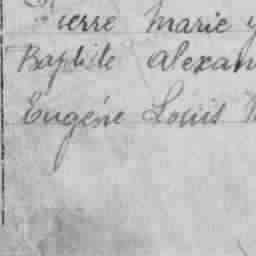 Pierre Marie
Baptiste Alexan
Eugène Louis